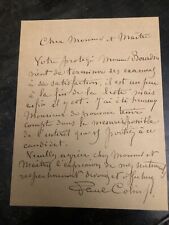 Cher Monsieur et Maître
Votre protégé Monsieur
vient de terminer ses examens
à sa satisfaction, il est un peu
à la fin de la liste mais
enfin il y est. J'ai été heureux
Monsieur de pouvoir tenir
compte dans la mesure possible
de l'intérêt que vous portiez à ce
candidat.
Veuillez agréer cher Monsieur et
Maître l'expression de mes sentiments
respectueusement dévoués et
Paul